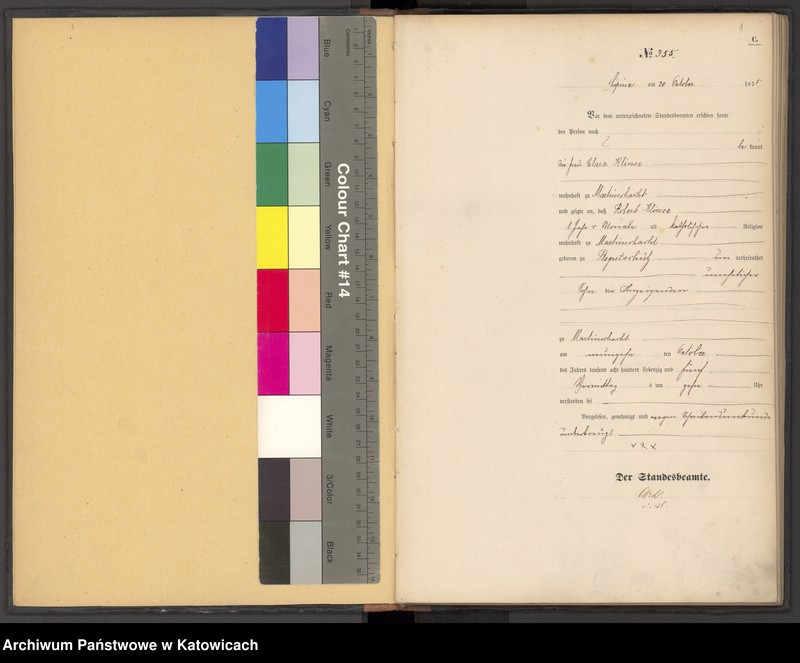 Blue
Cyan
Green
Yellow
Red
Magenta
White
3/Color
Black
Colour Chart #14
Centimetres
Inches
1
C.
№ 355.
Lipine am 20 October 187
Vor dem unterzeichneten Standesbeamten erschien heute
der Person nach
kannt
die frau Clara
wohnhaft zu Martinschacht
und zeigte an, daß Robert
1 Jahr Monate alt katholischer Religion
wohnhaft zu Martinschacht
geboren zu un verheirathet
unehelicher
Sohn der Anzeigenden
zu Martinschacht
am ten October
des Jahres tausend acht hundert siebenzig und fünf
Vormittag s um zehn Uhr
verstorben sei
Vorgelesen, genehmigt und wegen Schreibensunkunde
unterkreuzt
x x x
Der Standesbeamte.
Archiwum Państwowe w Katowicach